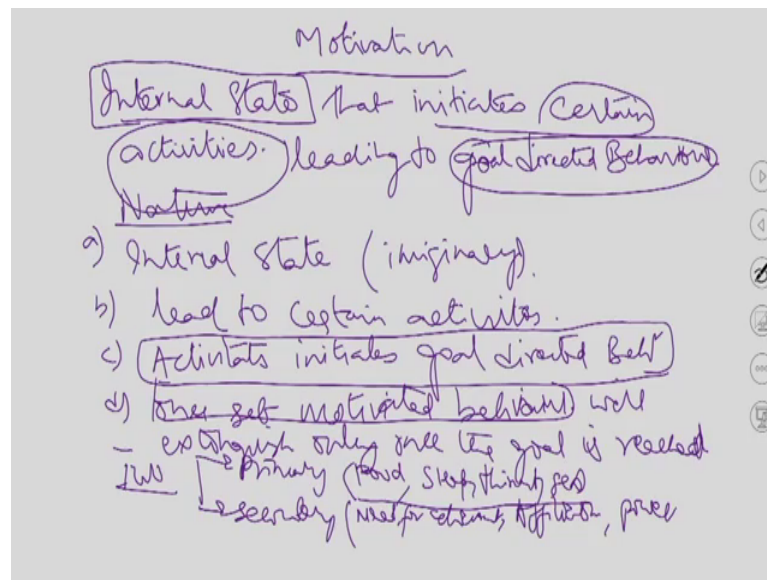 Motivation
Internal State that initiates certain
activities. leading to goal directed Behaviour
Nature
a) Internal State (imiginary).
b) lead to certain activites.
c) Activitats initiates goal directed Beh
d) once set motivated behiviour will
extinguish only once the goal is reached
Two Primary (Food, Sleep, thirst, sex)
secondary (Need for achievment, Affiliation, power